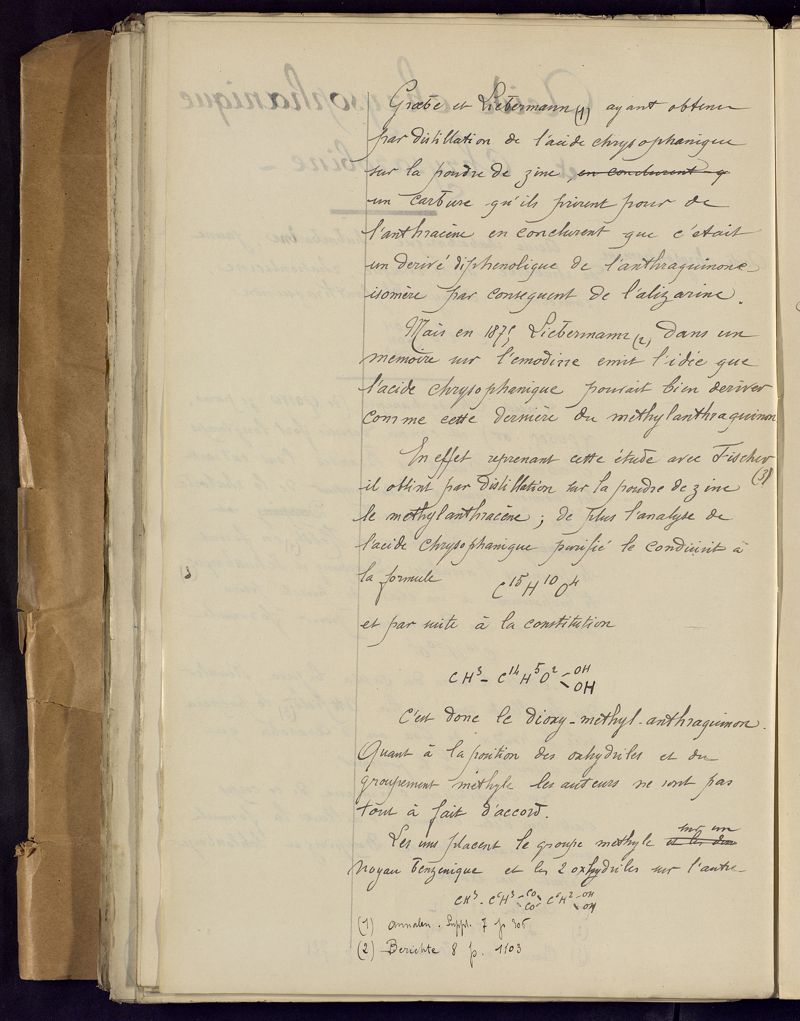 Græbe et Liebermann (1) ayant obtenu
par distillation de l'acide chrysophanique
sur la poudre de zinc en conclurent q
un carbure qu'ils prirent pour de
l'anthracène en conclurent que c'etait
un derivé diphenolique de l'anthraquinone
isomère par consequent de l'alizarine.
Mais en 1875 Liebermann (2) dans un
memoire sur l'emodine emit l'idée que
l'acide chrysophanique pouvait bien deriver
comme cette dernière du methylanthraquinon
En effet reprenant cette étude avec Fischer
(3)
il obtint par distillation sur la poudre de zinc
le methylanthracène ; de plus l'analyse de
l'acide chrysophanique purifié le conduisit à
la formule C15 H10 O4
et par suite à la constitution
CH3 - C14 H5 O2 OH
OH
C'est donc le dioxy-methyl-anthraquinon.
Quant à la position des oxhydriles et du
groupement méthyle les auteurs ne sont pas
tout à fait d'accord.
sur un
Les uns placent le groupe methyle et les deux
noyau benzenique et les 2 oxhydriles sur l'autre
CH3 - C6H3 CO CO C6H2 OH OH
(1) Annalen. Suppl. 7 p 306
(2) Berichte 8 p. 1103